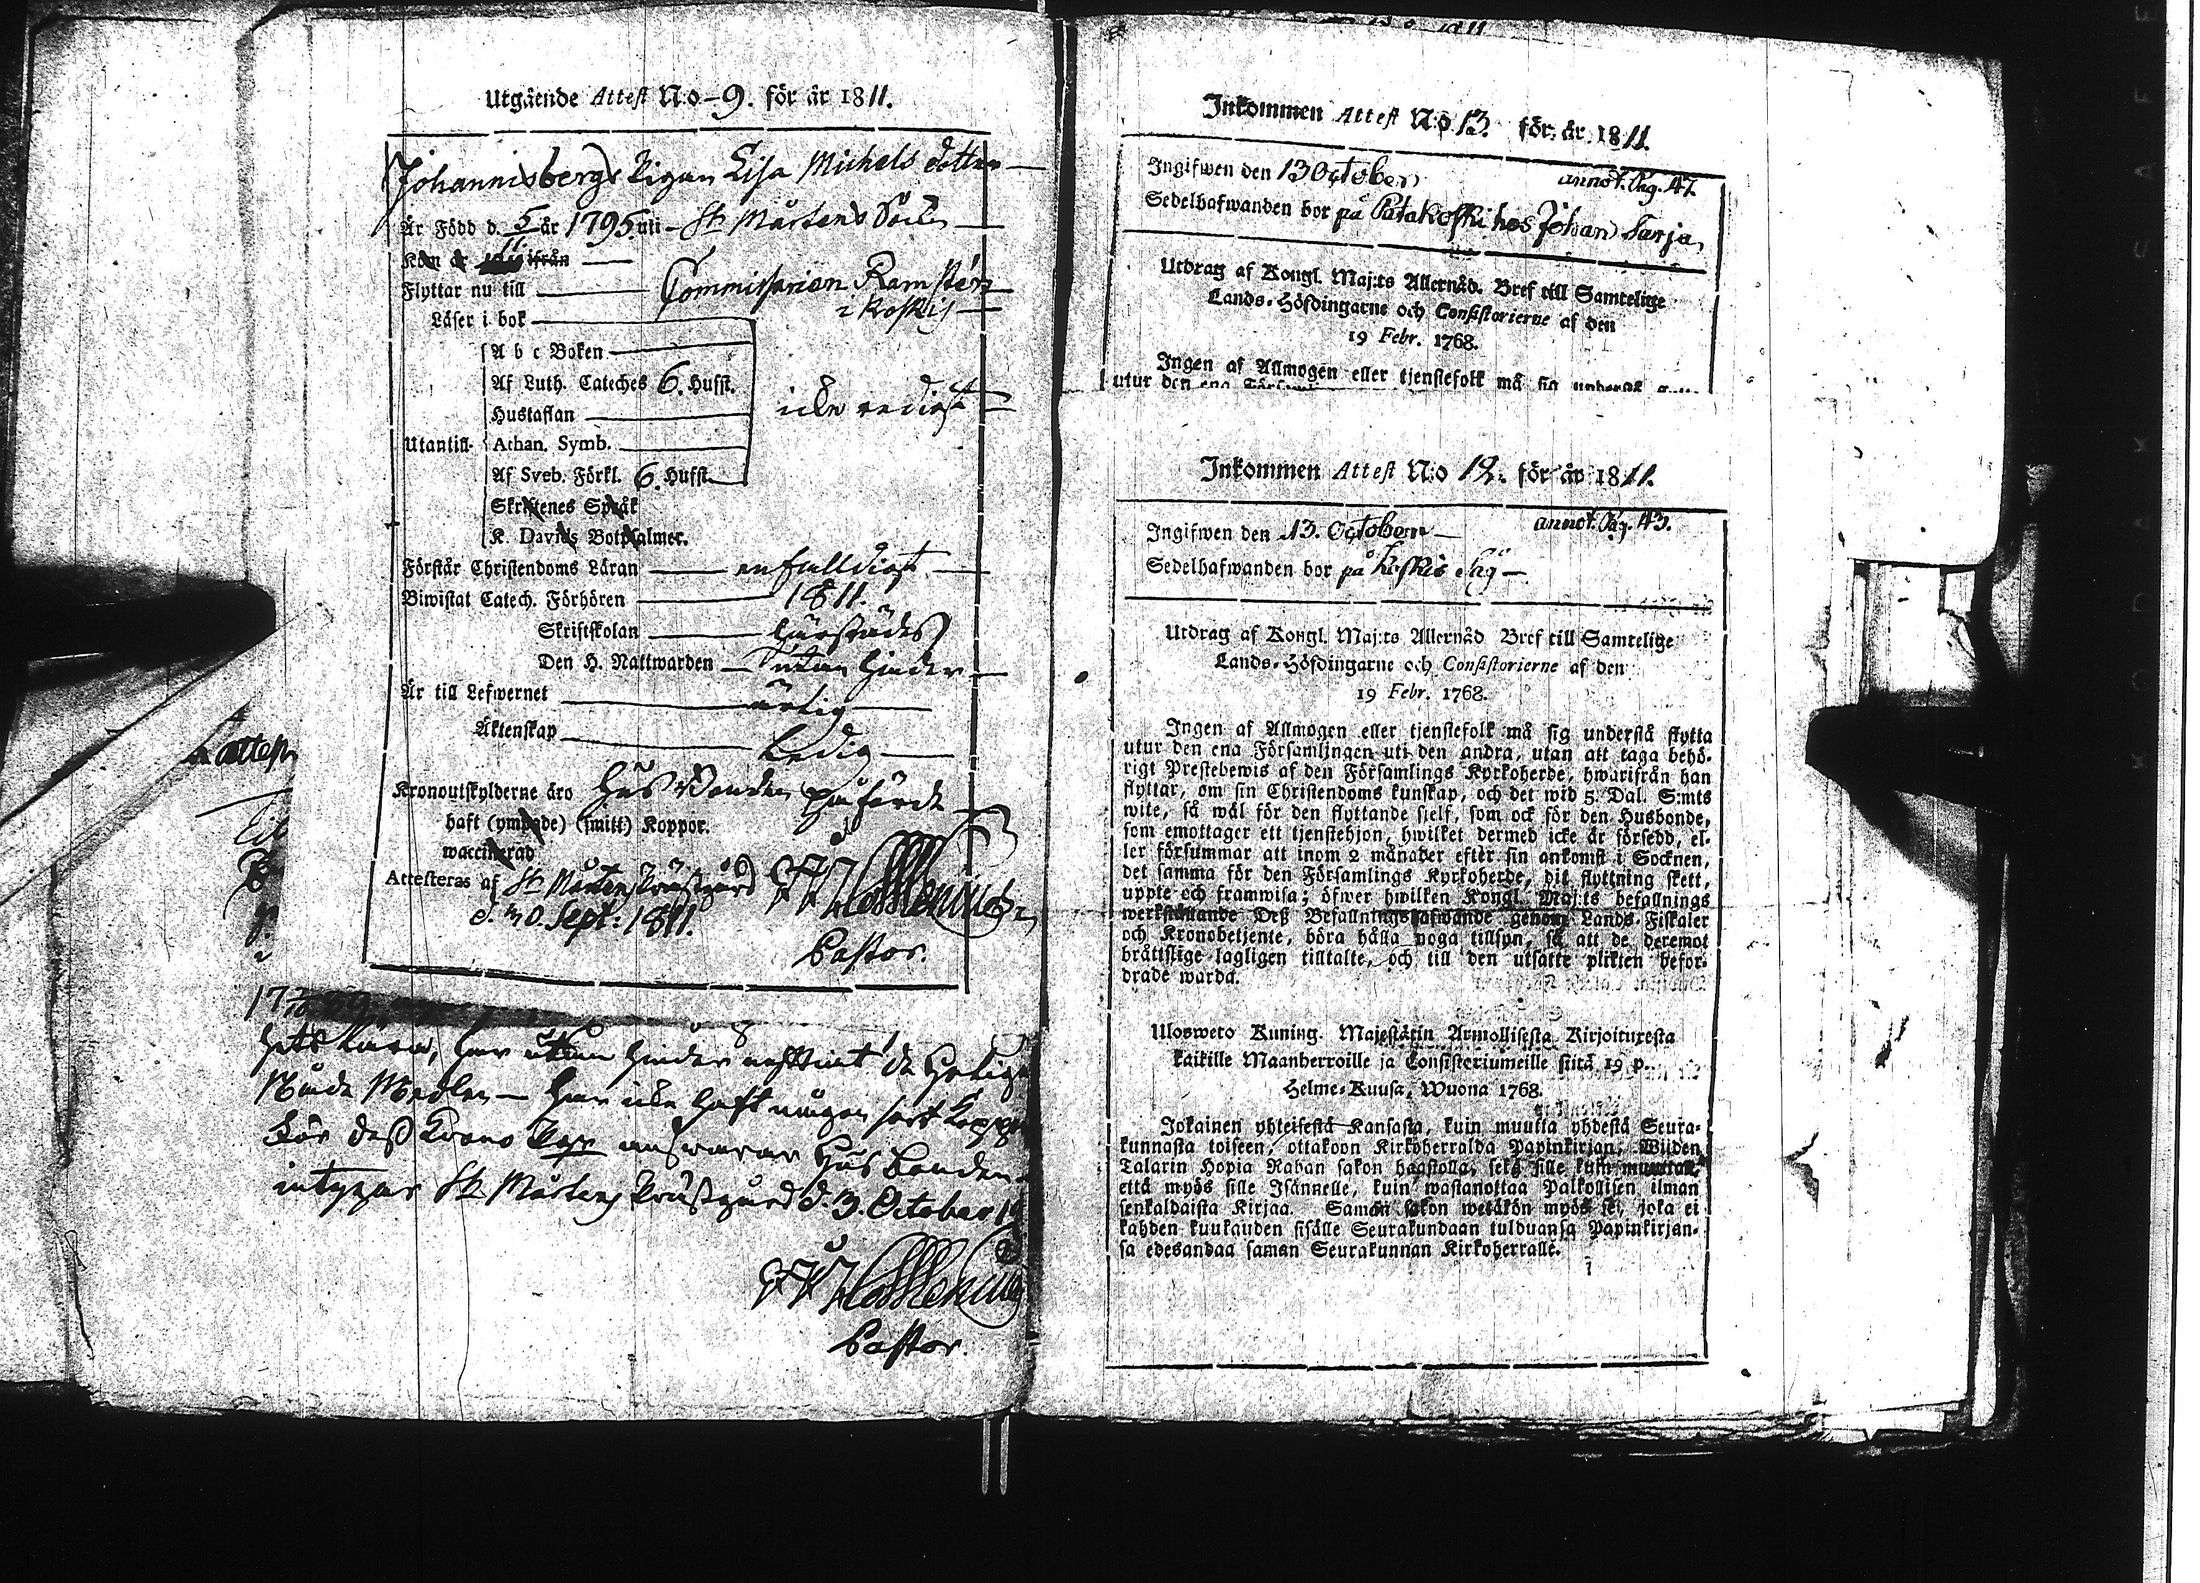 Utgående Attest N:o 9. för år 1811.
Johannisbergs Pigan Lisa Michels dotter
Är Född d. 5/11 år 1795 uti St Mårtens Sockn
Kom år ifrån
Flyttar nu till Commissarien Ramstén
i Koskis
Läser i bok
A b c Boken
Af Luth. Cateches 6. Hufst.
Hustaflan icke redigt
Utantill Athan. Symb.
Af Sveb. Förkl. 6. Hufst.
Skriftenes Språk
K. Davids Botpsalmer.
Förstår Christendoms Läran enfalldigt
Biwistat Catech. Förhören 1811.
Skriftskolan härstädes
Den H. Nattwarden utan hinder
Är till Lefwernet ärlig
Äktenskap ledig
Kronoutskylderne äro Hus Bonden påförde
haft (ympade) (smitt) Koppor.
waccinerad
Attesteras af St Mårtens Prästgård
d. 30. Sept: 1811.
Pastor.
attest
har utan hinder de Heliga
Nåde Medlen har icke haft någon sort Koppor
För dess Krono answarar Hus Bonden
intygar St Mårtens Prästgård d. 3. October
Pastor.
Inkommen Attest N:o 13. för år 1811.
annot. Pag. 47.
Ingifwen den 13 October
Sedelhafwanden bor på Patakoski hos Johan Tarja
Utdrag af Kongl. Maj:ts Allernåd. Bref till Samtelige
Lands-Höfdingarne och Consistorierne af den
19 Febr. 1768.
Ingen af Allmogen eller tjenstefolk må sig
utur den ena
Inkommen Attest N:o 12. för år 1811.
annot. Pag. 43.
Ingifwen den 13. October
Sedelhafwanden bor på Koskis Såg
Utdrag af Kongl. Maj:ts Allernåd. Bref till Samtelige
Lands-Höfdingarne och Consistorierne af den
19 Febr. 1768.
Ingen af Allmogen eller tjenstefolk må sig understå flytta
utur den ena Församlingen uti den andra, utan att taga behö-
rigt Prestebewis af den Församlings Kyrkoherde, hwarifrån han
flyttar, om sin Christendoms kunskap, och det wid 5. Dal. S:mts
wite, så wäl för den flyttande sielf, som ock för den Husbonde,
som emottager ett tjenstehjon, hwilket dermed icke är försedd, el-
ler försummar att inom 2 månader efter sin ankomst i Socknen,
det samma för den Församlings Kyrkoherde, dit flyttning skett,
uppte och framwisa; öfwer hwilken Kongl. Maj:ts befallnings
werkställande Deß Befallningshafwande genom Lands-Fiskaler
och Kronobetjente, böra hålla noga tillsyn, så att de deremot
bråttslige lagligen tilltalte, och till den utsatte plikten befor-
drade warda.
Ulosweto Kuning. Majestätin Armollisesta Kirjoituresta
kaikille Maanherroille ja Consistoriumeille siitä 19 p.
Helme-Kuusa, Wuona 1768.
Jokainen yhteisestä Kansasta, kuin muutta yhdestä Seura-
kunnasta toiseen, ottakoon Kirkoherralda Papinkirjan, Wiiden
Talarin Hopia Rahan sakon haastolla, sekä sille kuin muuttaa,
että myös sille Isännelle, kuin wastanottaa Palkollisen ilman
senkaldaista Kirjaa. Saman sakon wetäkön myös se, joka ei
kahden kuukauden sisälle Seurakundaan tulduansa Papinkirjan-
sa edesandaa saman Seurakunnan Kirkoherralle.